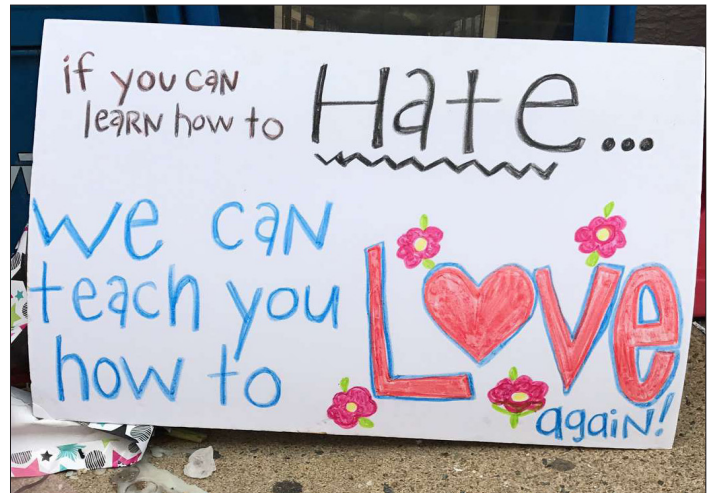 if you can
learn how to Hate...
we can
teach you
how to Love
again!